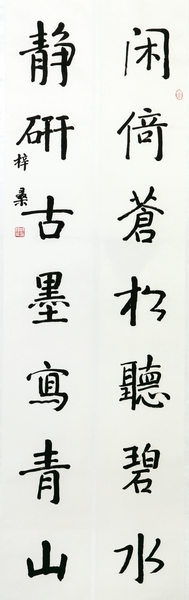 闲倚蒼松聽碧水
静研古墨寫青山
梓桑